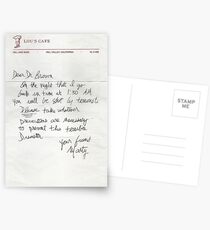 LOU'S CAFE
Dear Dr. Brown
On the night that I go
back in time at 1:30 AM
you will be shot by terrorists
Please take whatever
precautions are necessary
to prevent this terrible
Disaster
Your friend
Marty
PLACE
STAMP
HERE